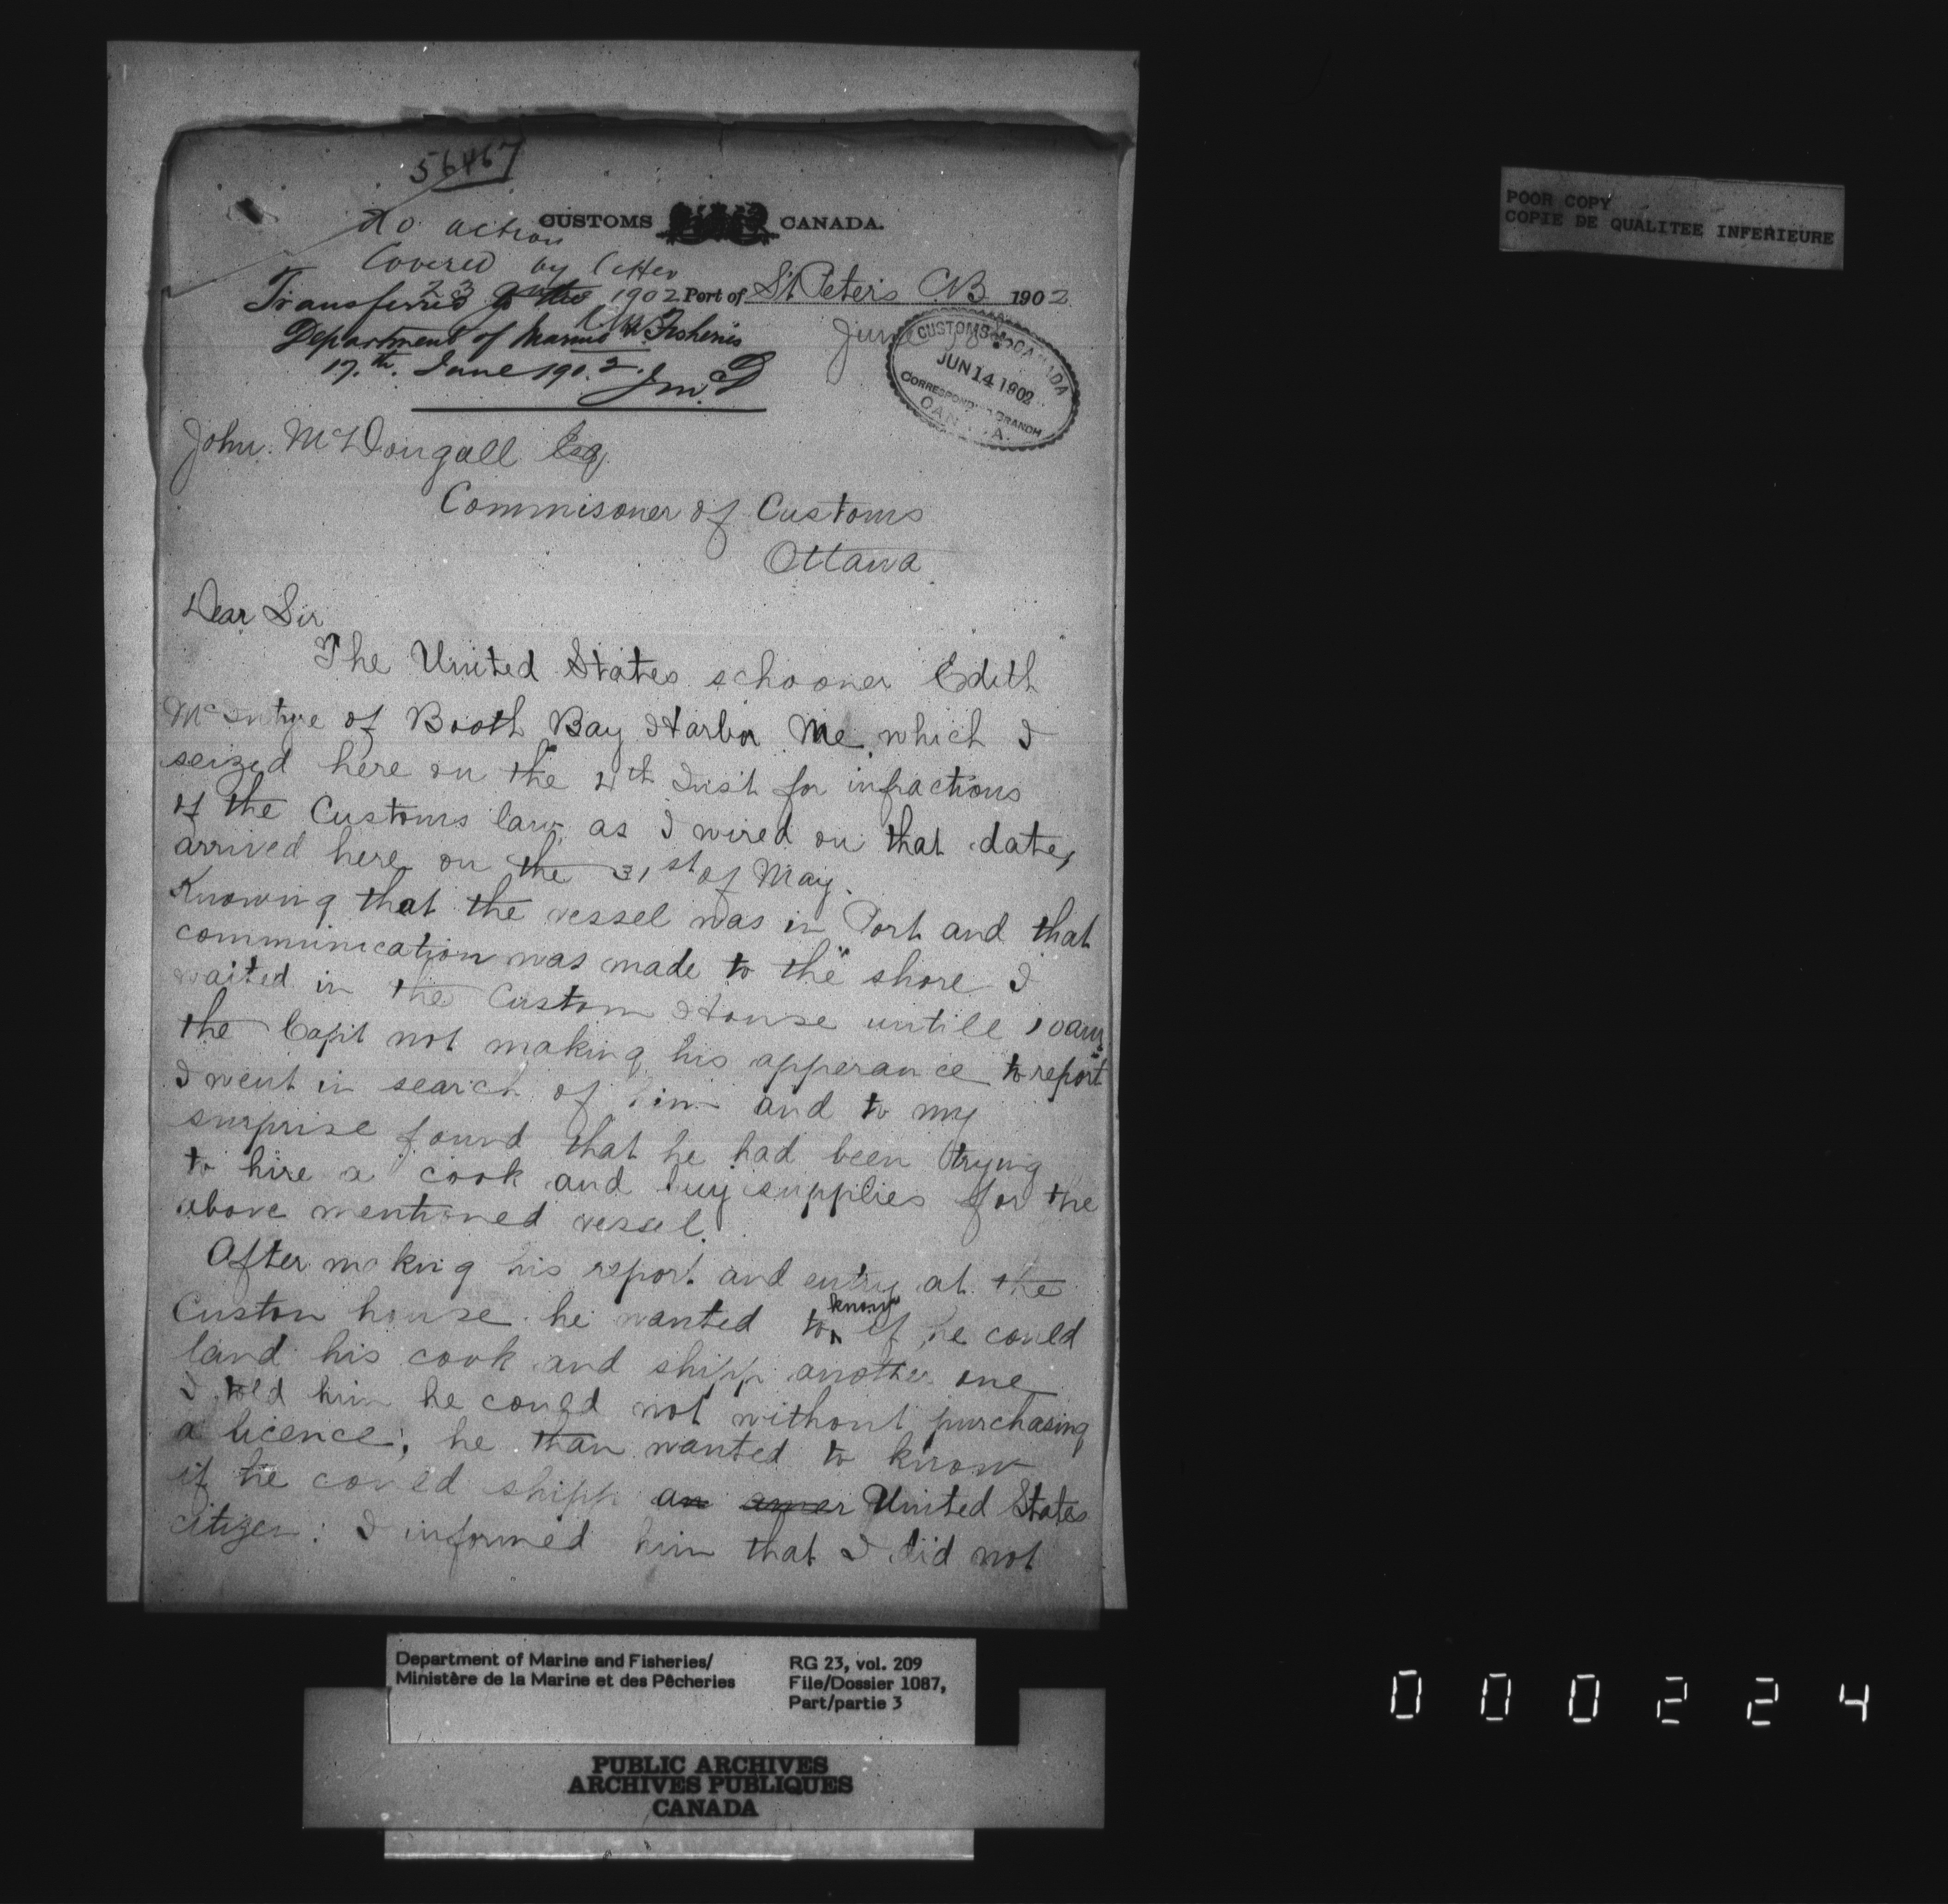 56467
No action
CUSTOMS CANADA.
Covered by letter
23 June 1902
Transferred to the
Port of St Peters C.B. 1902
Department of Marine & Fisheries
17.th. June 1902. J McD
June
CUSTOMS CANADA
JUN 14 1902
CORRESPONDING BRANCH
CANADA.
John McDougall Esq
Commisoner of Customs
Ottawa
Dear Sir
The United States schooner Edith
McIntyre of Booth Bay Harbor Me, which I
seized here on the 4th Inst for infractions
of the Customs law, as I wired on that date,
arrived here on the 31st of May.
Knowing that the vessel was in Port and that
communication was made to the shore I
waited in the Custom House untill 10am
the Capt not making his apperance to report
I went in search of him and to my
surprise found that he had been trying
to hire a cook and buy supplies for the
above mentioned vessel.
After making his report and entry at the
Custom house he wanted to know if he could
land his cook and shipp another one
I told him he could not without purchasing
a licence; he than wanted to know
if he could shipp an amer United States
citizen: I informed him that I did not
POOR COPY
COPIE DE QUALITEE INFERIEURE
Department of Marine and Fisheries/
Ministère de la Marine et des Pêcheries
RG 23, vol. 209
File/Dossier 1087,
Part/partie 3
PUBLIC ARCHIVES
ARCHIVES PUBLIQUES
CANADA
000224